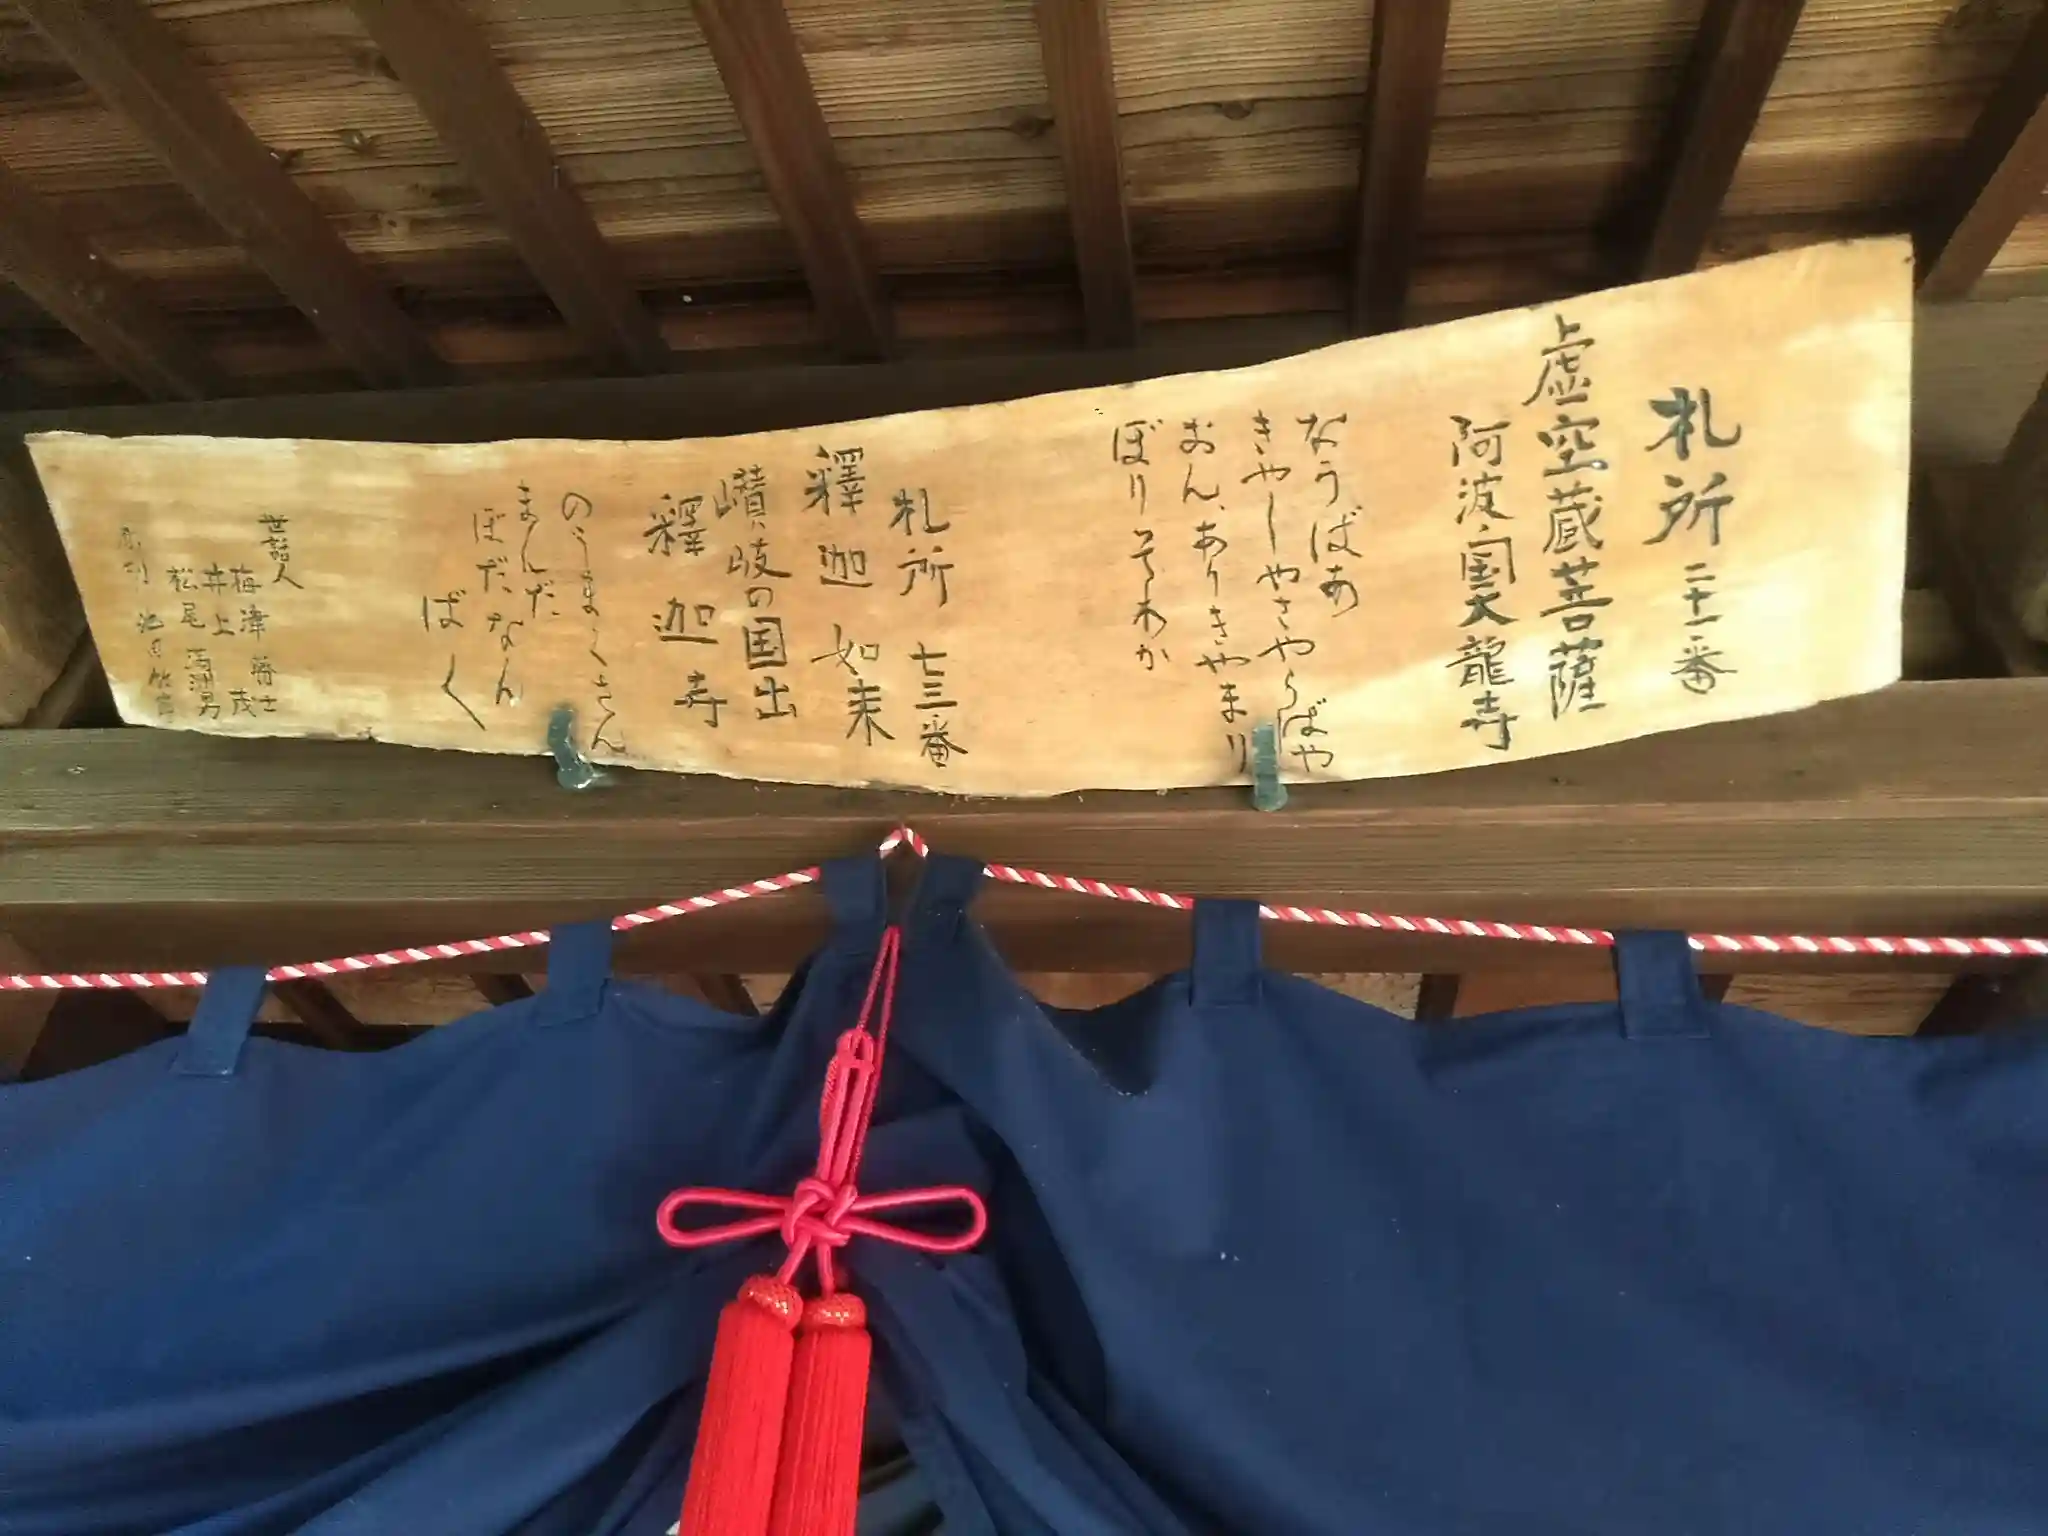 札所 二十一番
虚空蔵菩薩
阿波国大龍寺
なうばあ
きやーしやさやらばや
おん、ありきやまり
ぼりそわか
札所 七三番
釋迦如来
讃岐の国出
釋迦寺
のうまくさん
まんだ
ぼだなん
ばく
世話人
梅津
井上 茂
松尾 満洲男